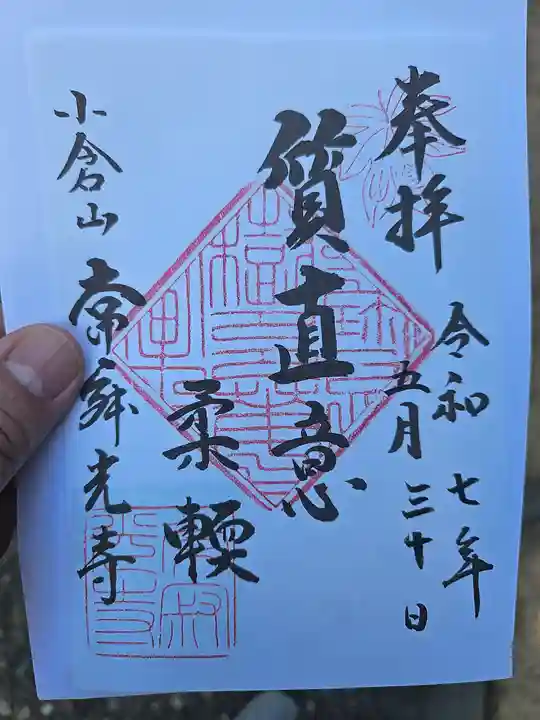 奉拝
令和七年
五月三十日
質直意
柔輭
小倉山
常寂光寺